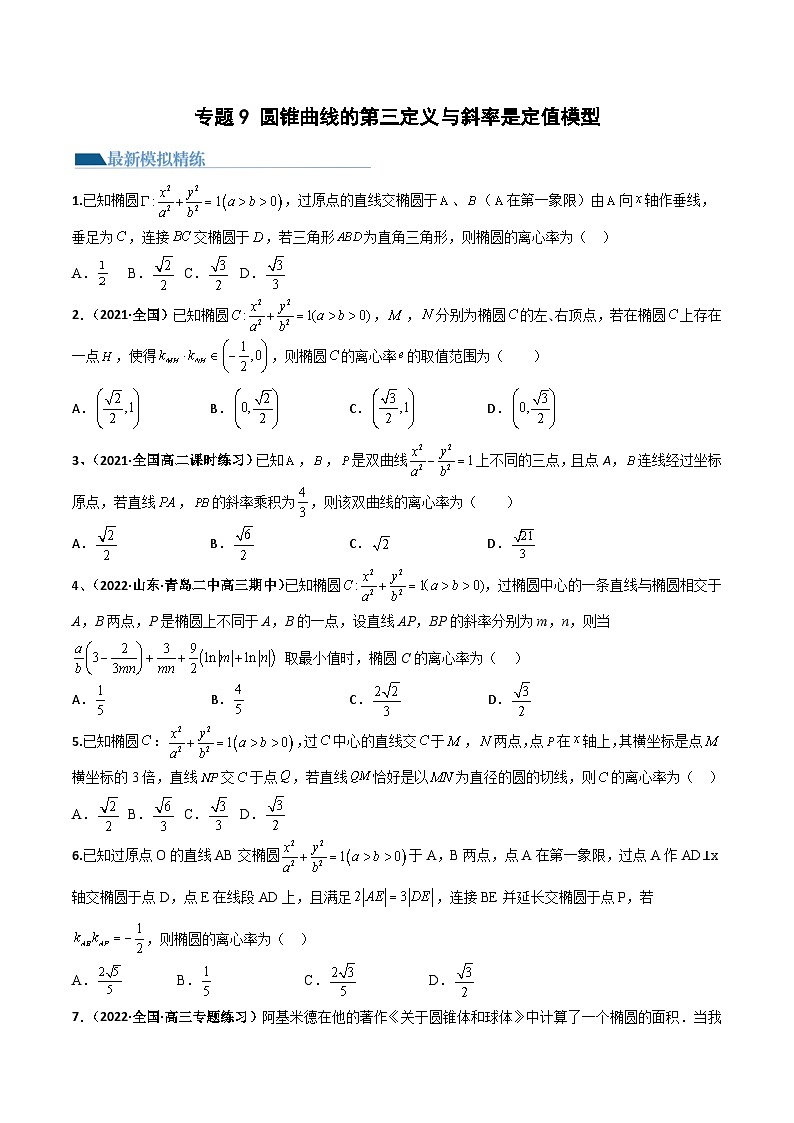 专题9 圆锥曲线的第三定义与斜率是定值模型
最新模拟精练
1.已知椭圆Γ:x²/a²+y²/b²=1(a>b>0)，过原点的直线交椭圆于A、B（A在第一象限）由A向x轴作垂线，
垂足为C，连接BC交椭圆于D，若三角形ABD为直角三角形，则椭圆的离心率为（ ）
A．1/2 B．√2/2 C．√3/2 D．√3/3
2.（2021·全国）已知椭圆C:x²/a²+y²/b²=1(a>b>0)，M，N分别为椭圆C的左、右顶点，若在椭圆C上存在
一点H，使得k_MH·k_NH∈(-1/2,0)，则椭圆C的离心率e的取值范围为（ ）
A．(√2/2,1) B．(0,√2/2) C．(√3/2,1) D．(0,√3/2)
3、（2021·全国高二课时练习）已知A，B，P是双曲线x²/a²-y²/b²=1上不同的三点，且点A，B连线经过坐标
原点，若直线PA，PB的斜率乘积为4/3，则该双曲线的离心率为（ ）
A．√2/2 B．√6/2 C．√2 D．√21/3
4、（2022·山东·青岛二中高三期中）已知椭圆C:x²/a²+y²/b²=1(a>b>0)，过椭圆中心的一条直线与椭圆相交于
A，B两点，P是椭圆上不同于A，B的一点，设直线AP，BP的斜率分别为m，n，则当
a/b(3-2/3mn)+3/mn+9/2(ln|m|+ln|n|) 取最小值时，椭圆C的离心率为（ ）
A．1/5 B．4/5 C．2√2/3 D．√3/2
5.已知椭圆C：x²/a²+y²/b²=1(a>b>0)，过C中心的直线交C于M，N两点，点P在x轴上，其横坐标是点M
横坐标的3倍，直线NP交C于点Q，若直线QM恰好是以MN为直径的圆的切线，则C的离心率为（ ）
A．√2/2 B．√6/3 C．√3/3 D．√3/2
6.已知过原点O的直线AB交椭圆x²/a²+y²/b²=1(a>b>0)于A，B两点，点A在第一象限，过点A作AD⊥x
轴交椭圆于点D，点E在线段AD上，且满足2|AE|=3|DE|，连接BE并延长交椭圆于点P，若
k_AB k_AP=-1/2，则椭圆的离心率为（ ）
A．2√5/5 B．1/5 C．2√3/5 D．√3/2
7.（2022·全国·高三专题练习）阿基米德在他的著作《关于圆锥体和球体》中计算了一个椭圆的面积．当我